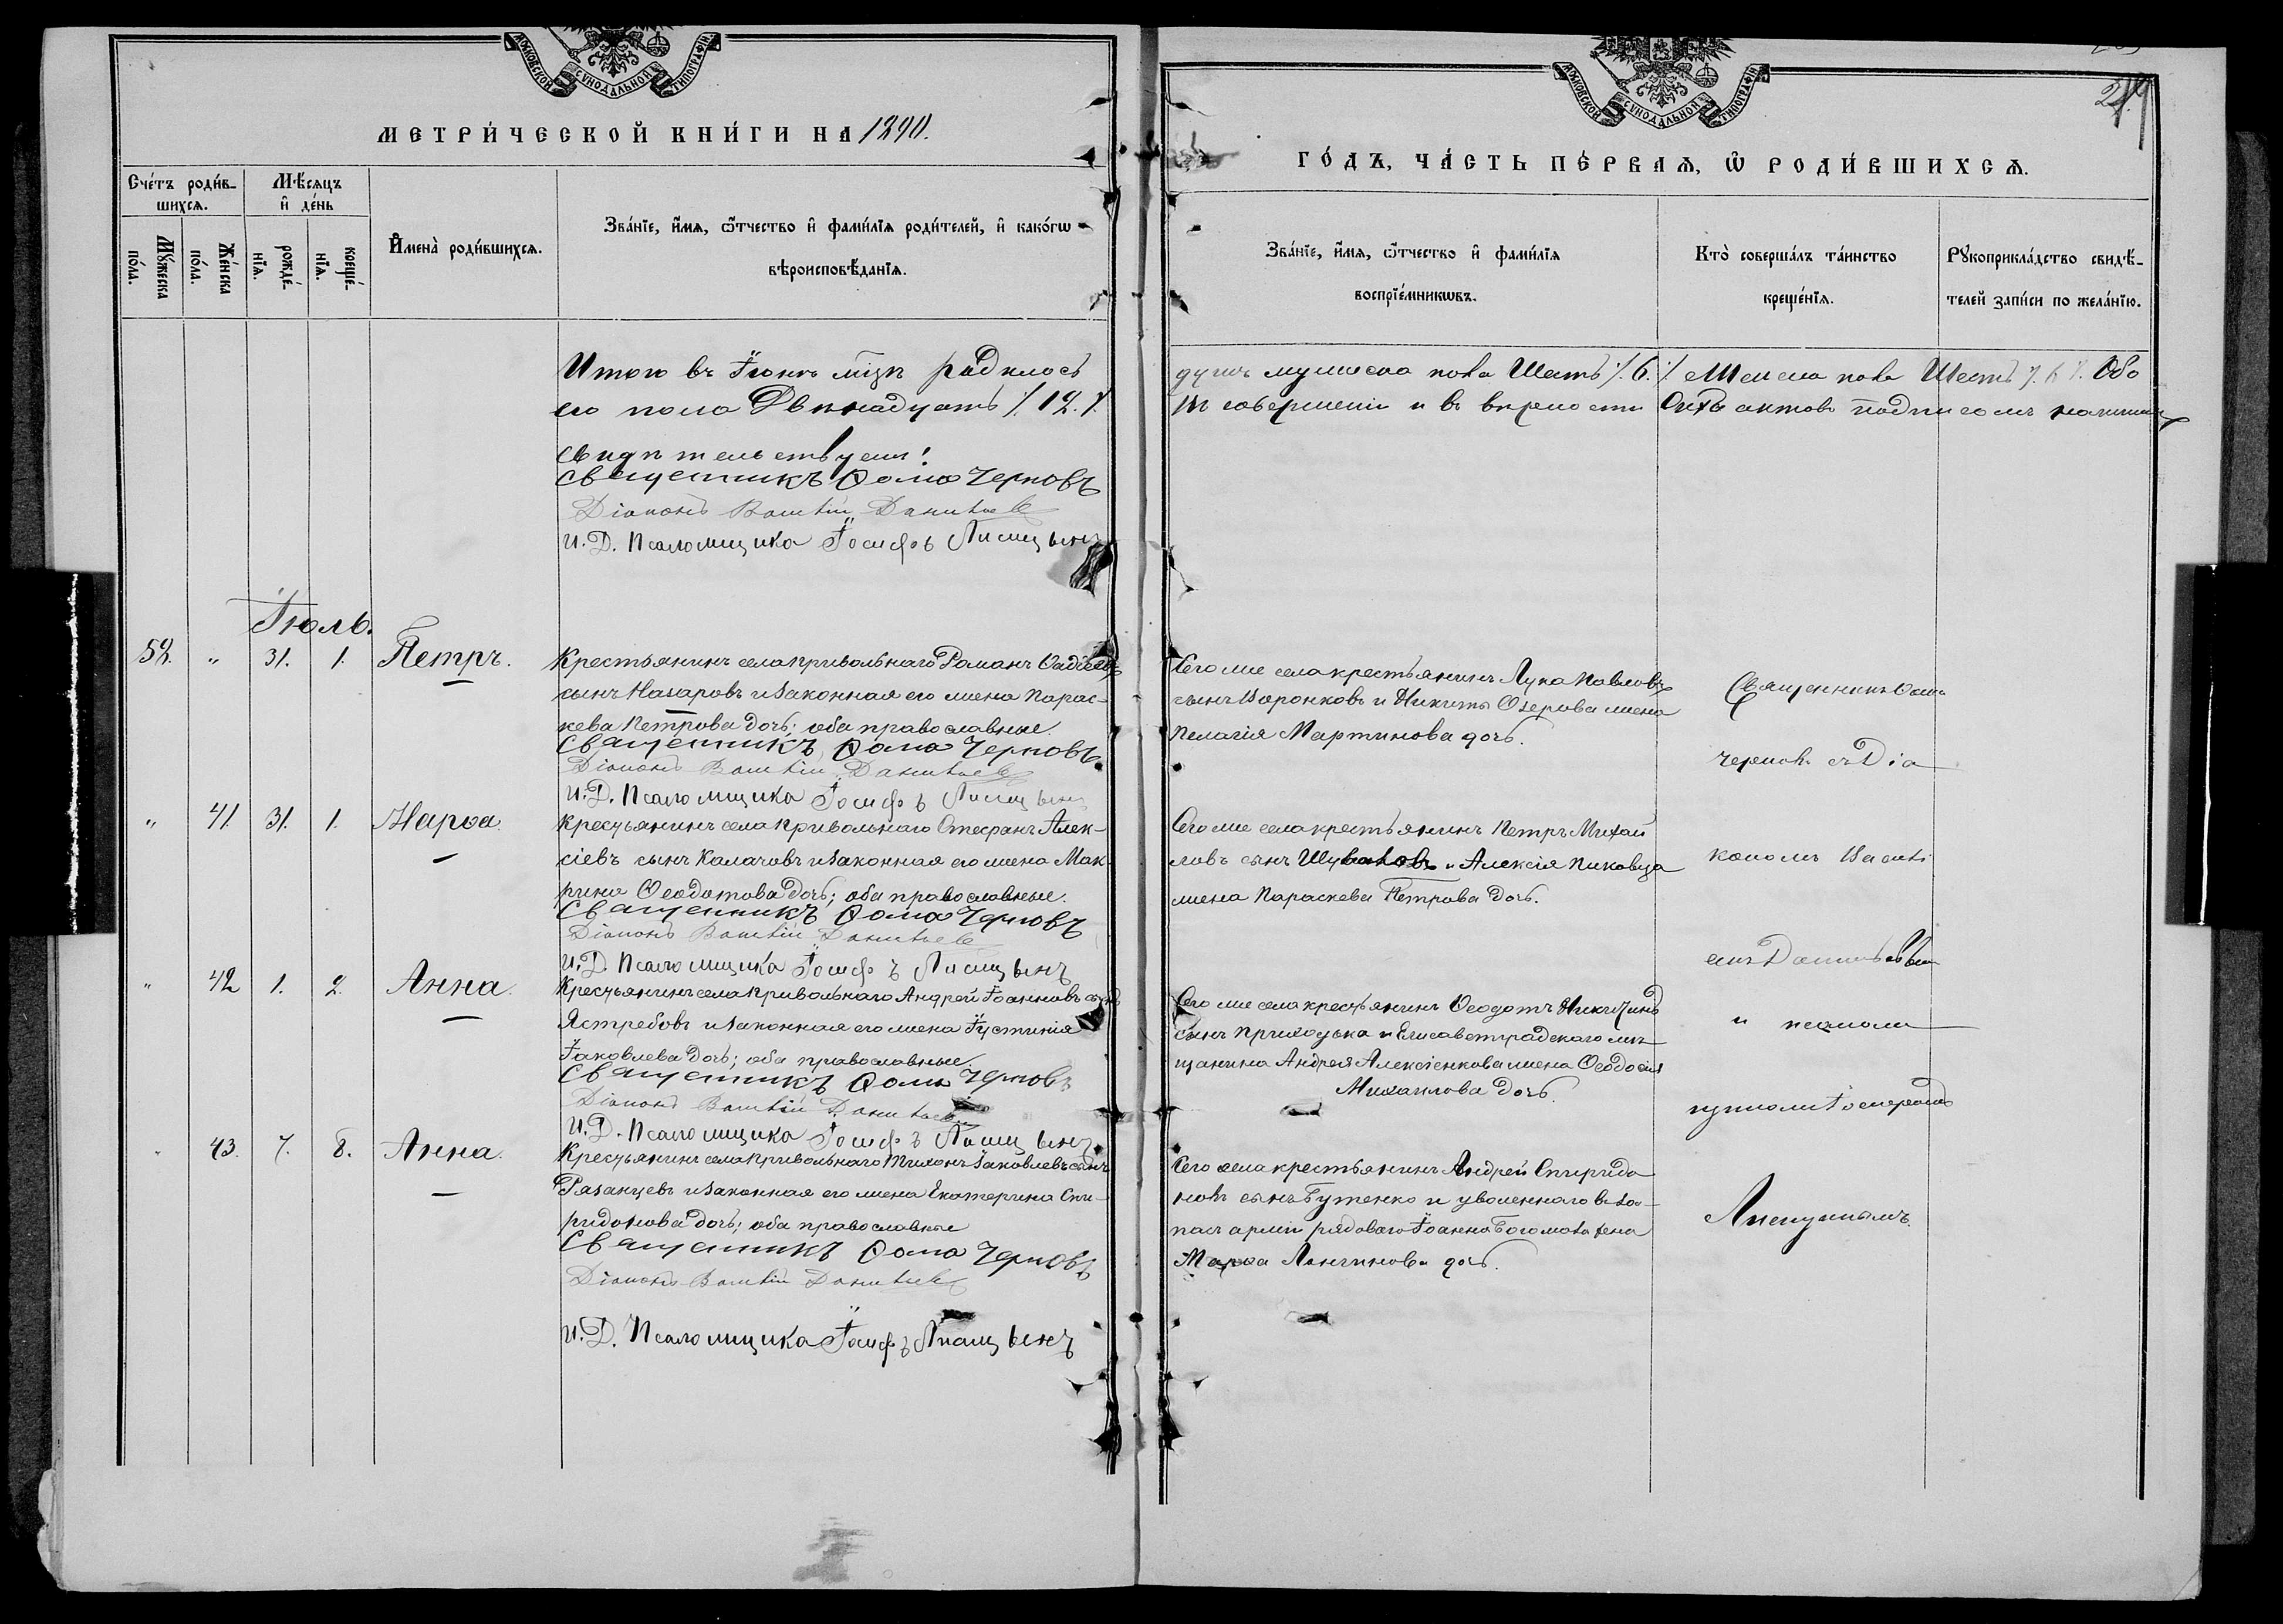 МОСКОВСКОЙ СУНОДАЛЬНОЙ ТИПОГРАФІИ
МЕТРИ́ЧЕСКОЙ КНИ́ГИ НА 1890.
Счётъ роди́в-
шихся.
Мѣ́сяцъ
и҆ де́нь
Му́жеска
по́ла.
Же́нска
по́ла.
рожде́-
нїя.
креще́-
нїя.
И҆мена̀ роди́вшихся.
Зва́нїе, и҆́мя, ѻ҆́тчество и҆ фами́лїя роди́телей, и҆ како́гѡ
вѣроисповѣ́данїя.
Итого въ Іюнѣ мѣцѣ родилось
го пола Двѣнадцать /. 12. /.
свидѣтельствуемъ:
Священникъ Ѳома Черновъ
Діаконъ Василій Данилов
И. Д. Псаломщика Іосифъ Лисицынъ
Іюль.
52. " 31. 1. Петръ. Крестьянинъ села Привольнаго Романъ Фадѣевъ
сынъ Назаровъ и законная его жена Парас-
кева Петрова дочь; оба православные.
Священникъ Ѳома Черновъ
Діаконъ Василій
И. Д. Псаломщика Іосифъ Лисицынъ
" 41. 31. 1. Марѳа. Крестьянинъ села Привольнаго Стефанъ Алек-
сіевъ сынъ Калачовъ и законная его жена Мак-
рина Ѳеодотова дочь; оба православные.
Священникъ Ѳома Черновъ
Діаконъ Василій
И. Д. Псаломщика Іосифъ Лисицынъ
" 42 1. 2. Анна. Крестьянинъ села Привольнаго Андрей Іоанновъ сынъ
Ястребовъ и законная его жена Іустинія
Іаковлева дочь; оба православные.
Священникъ Ѳома Черновъ
Діаконъ Василій
И. Д. Псаломщика Іосифъ Лисицынъ
" 43. 7. 8. Анна. Крестьянинъ села Привольнаго Тихонъ Іаковлевъ сынъ
Рязанцевъ и законная его жена Екатерина Спи-
ридонова дочь; оба православные
Священникъ Ѳома Черновъ
Діаконъ Василій
И. Д. Псаломщика Іосифъ Лисицынъ
МОСКОВСКОЙ СУНОДАЛЬНОЙ ТИПОГРАФІИ
ГО́ДЪ, ЧА́СТЬ ПЕ́РВАЯ, Ѡ҆ РОДИ́ВШИХСЯ.
Зва́нїе, и҆́мя, ѻ҆́тчество и҆ фами́лїя
воспрїе́мникѡвъ.
Кто̀ соверша́лъ та́инство
креще́нїя.
Рꙋкоприкла́дство свидѣ́-
телей за́писи по жела́нїю.
душъ мужеска пола Шесть /. 6. /. Женска пола Шесть /. 6 /. Обо
Въ совершеніи и въ вѣрности сихъ актовъ подписомъ нашимъ
Того же села крестьянинъ Лука Павловъ
сынъ Воронковъ и Никиты Озерова жена
Пелагія Мартинова дочь.
Того же села крестьянинъ Петръ Михаи
ловъ сынъ Шуваловъ и Алексія Пиковца
жена Параскева Петрова дочь.
Того же села крестьянинъ Ѳеодотъ Никитинъ
сынъ Приходька и Елисаветградскаго мѣ-
щанина Андрея Алексіенкова жена Ѳеодосія
Михаилова дочь.
Того села крестьянинъ Андрей Спиридо
новъ сынъ Бутенко и уволеннаго въ за-
пасъ арміи рядоваго Іоанна Богомола жена
Марѳа Лонгинова дочь.
Священникъ Ѳома
Черновъ съ Діа
кономъ Васил
емъ
и псалом
щикомъ Іосифомъ
Лисицынымъ.